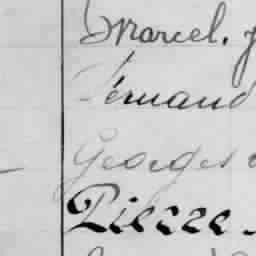 Marcel.
Fernand
Georges
Pierre